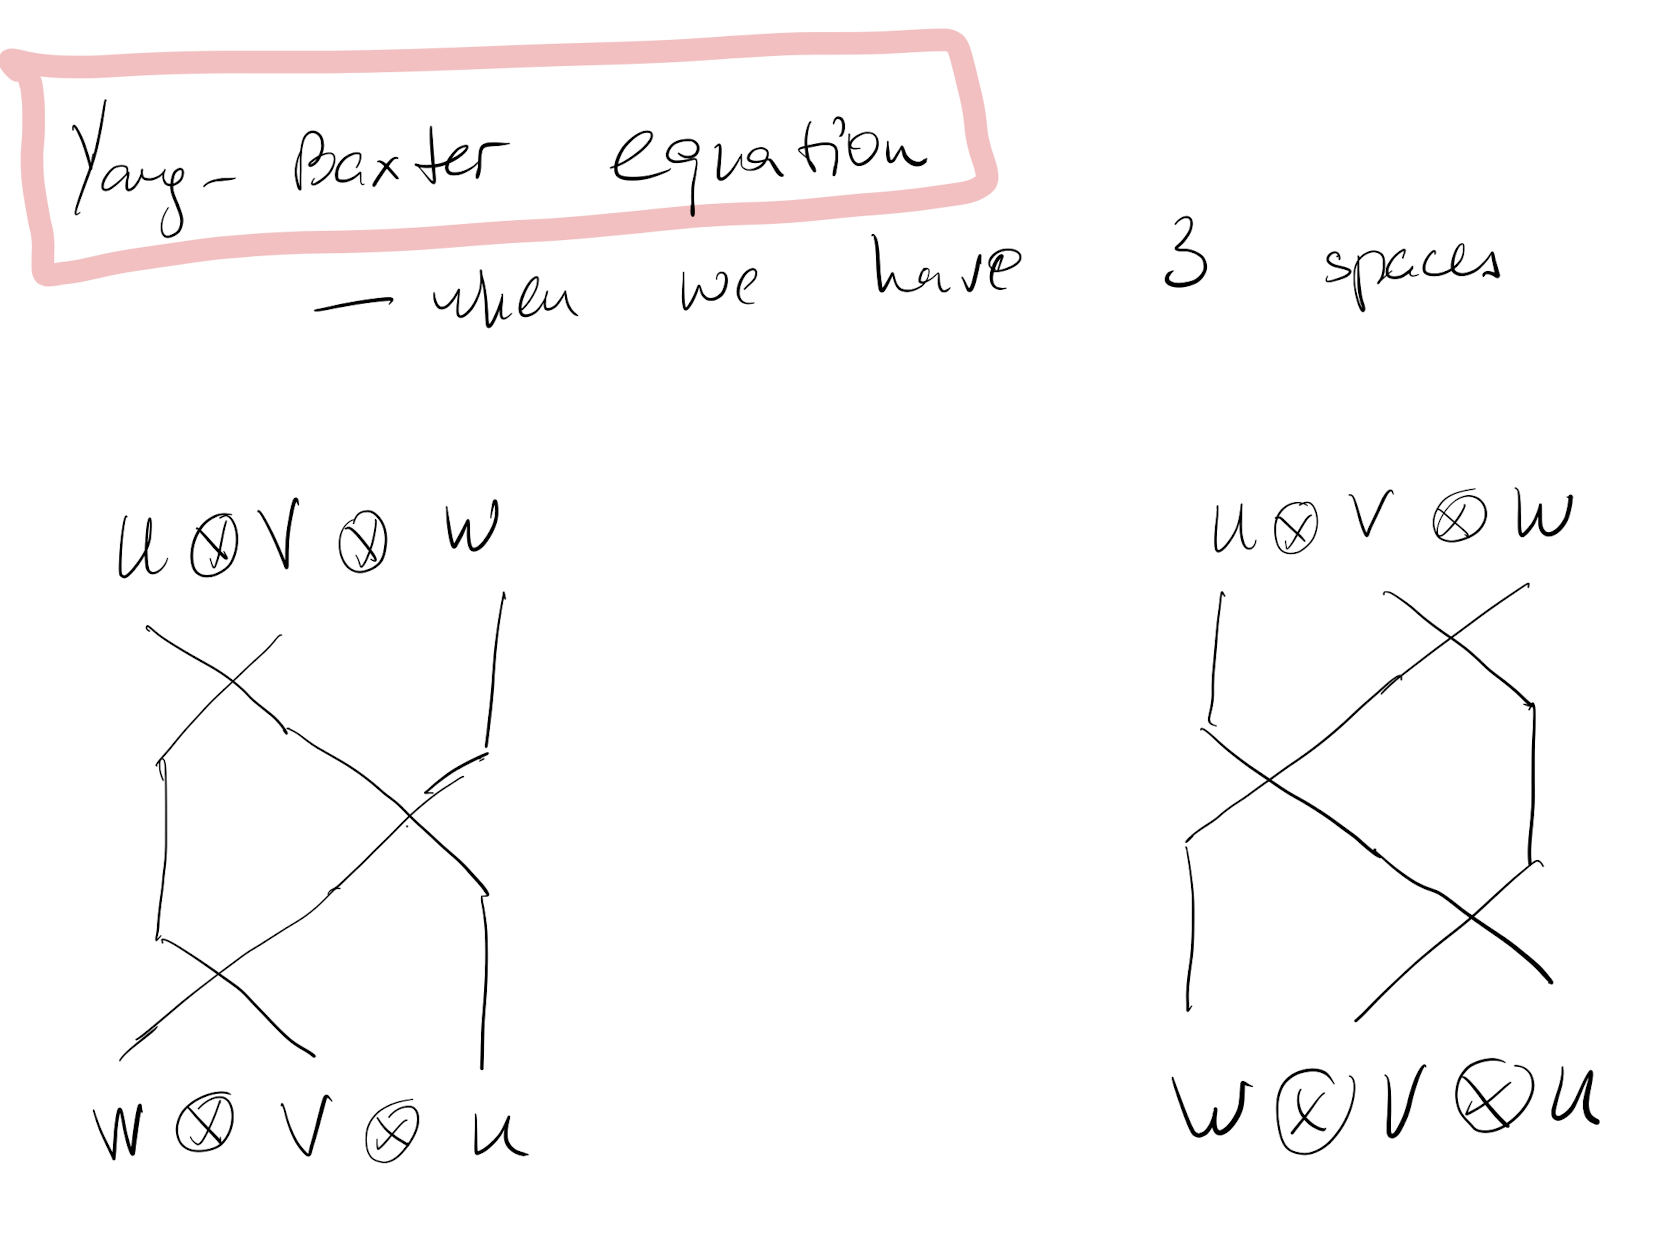 Yang-Baxter equation
— when we have 3 spaces
U ⊗ V ⊗ W
U ⊗ V ⊗ W
W ⊗ V ⊗ U
W ⊗ V ⊗ U